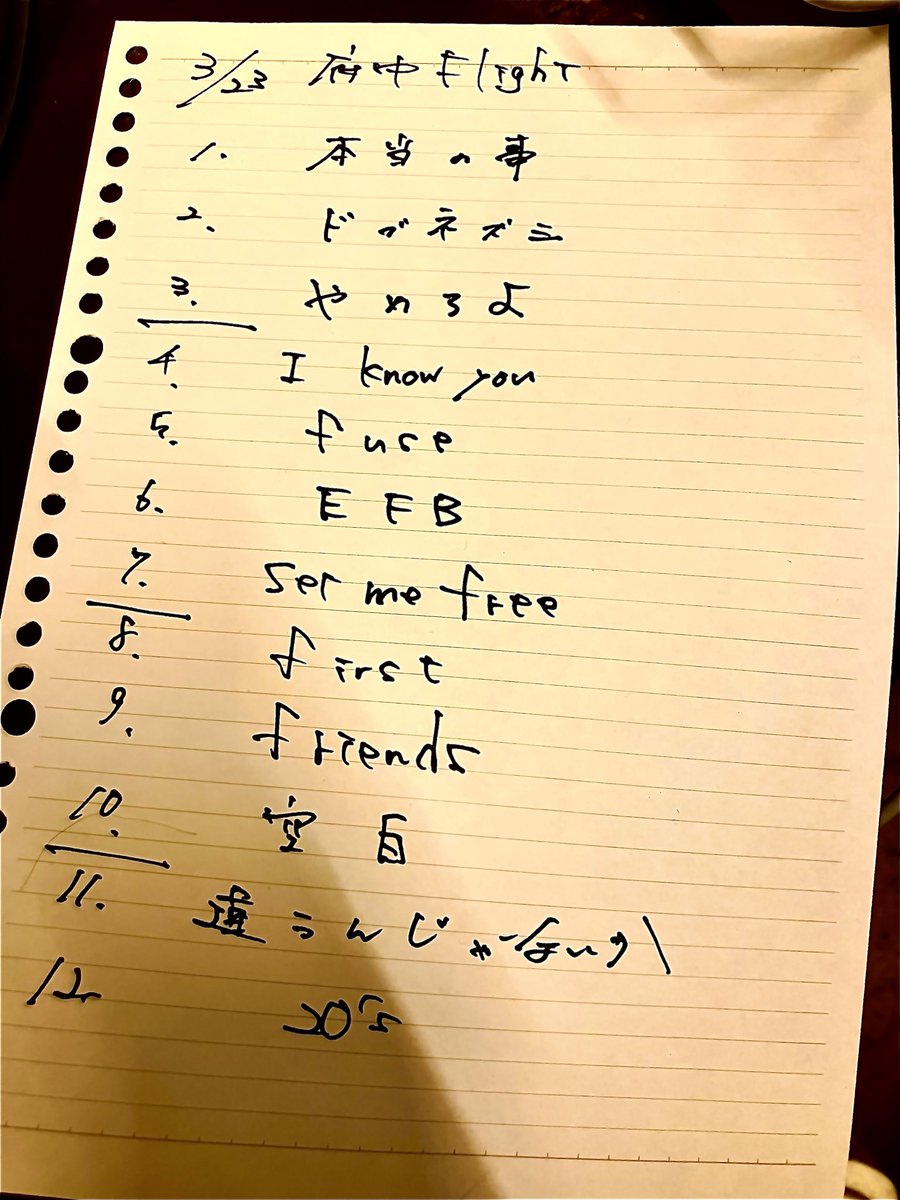 3/23 府中Flight
1. 本当の事
2. ドブネズミ
3. やめろよ
4. I know you
5. fuse
6. EFB
7. set me free
8. first
9. friends
10. 空白
11. 違うんじゃないか
12. 20's